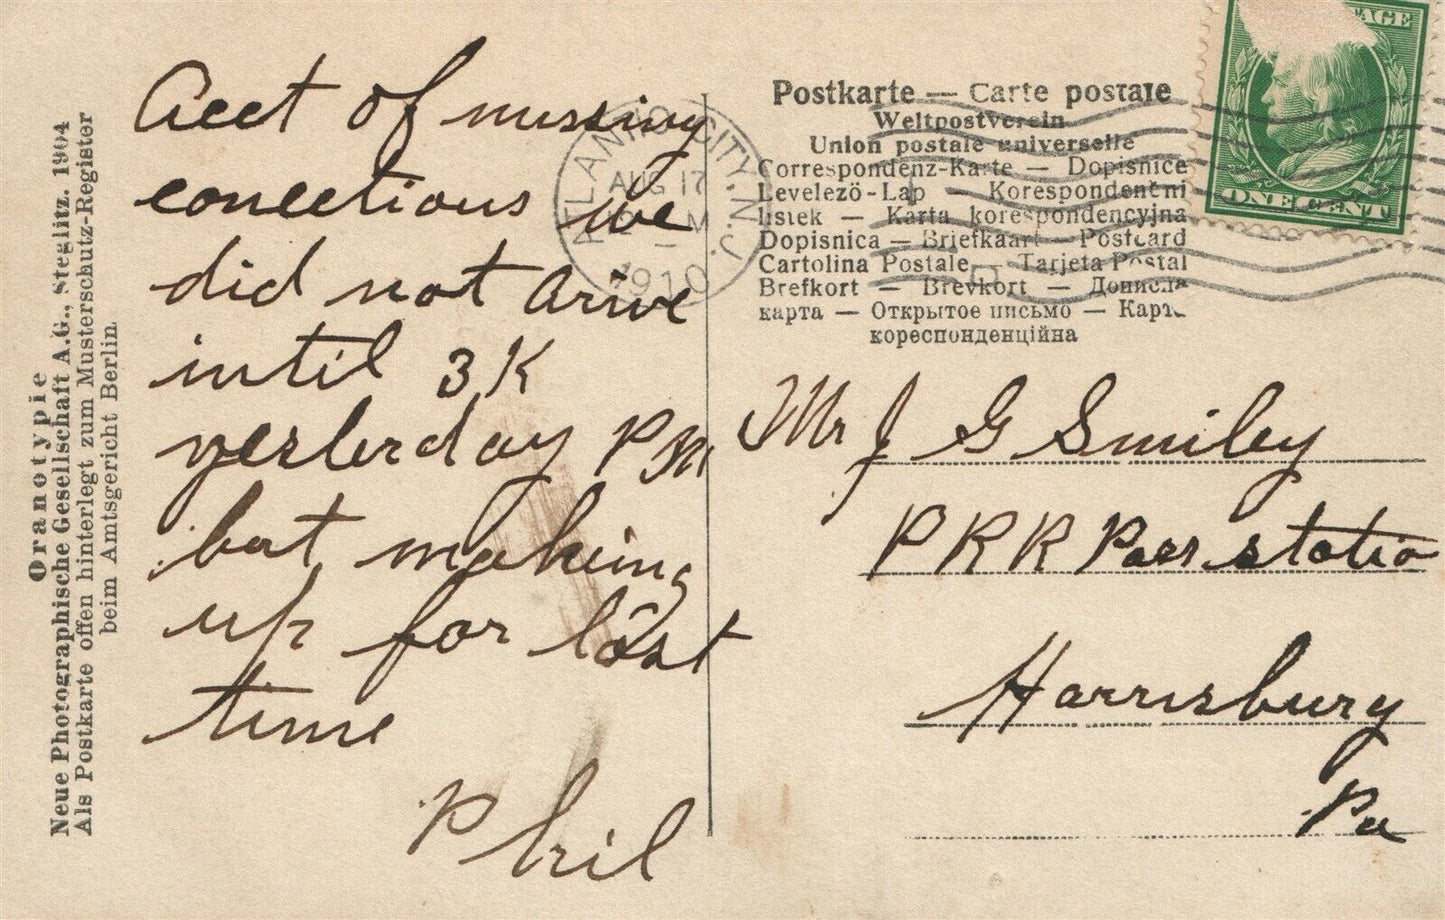 Acct of missing
conections we
did not arive
intil 3 K
yesterday PM
but making
up for lost
time
Phil
Postkarte — Carte postale
Weltpostverein
Union postale universelle
Correspondenz-Karte — Dopisnice
Levelező-Lap — Korespondenční
lístek — Karta korespondencyjna
Dopisnica — Briefkaart — Postcard
Cartolina Postale — Tarjeta Postal
Brefkort — Brevkort — Дописна
карта — Открытое письмо — Карта
кореспонденційна
Mr J G Smiley
P R R Pass statio
Harrisburg
Pa
ATLANTIC CITY, N.J.
AUG 17
M
1910
POSTAGE
ONE CENT
Oranotypie
Neue Photographische Gesellschaft A.G., Steglitz. 1904
Als Postkarte offen hinterlegt zum Musterschutz-Register
beim Amtsgericht Berlin.